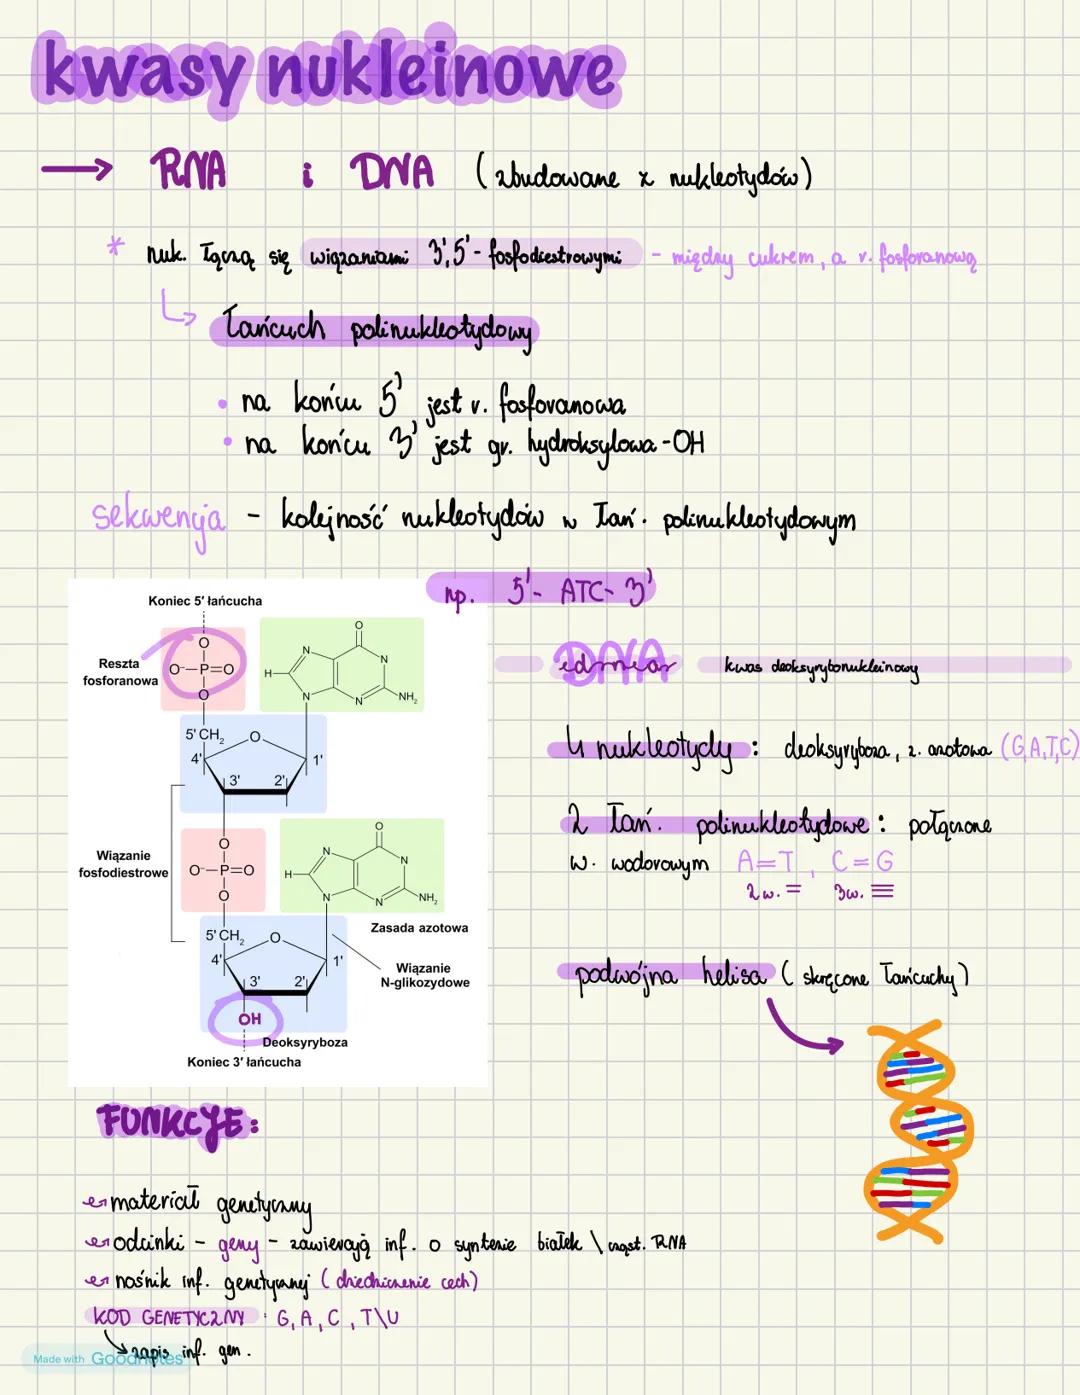 kwasy nukleinowe
→ RNA i DNA (zbudowane z nukleotydów)
* nuk. łączą się wiązaniami 3',5'- fosfodiestrowymi - między cukrem, a r. fosforanową
łańcuch polinukleotydowy
• na końcu 5' jest r. fosforanowa
• na końcu 3' jest gr. hydroksylowa -OH
sekwencja - kolejność nukleotydów w łań. polinukleotydowym
np. 5'- ATC- 3'
Koniec 5' łańcucha
Reszta
fosforanowa
O
O⁻—P=O
O
5' CH₂
O
4'
1'
3'
2'
O
N
N
H
N
N
NH₂
Wiązanie
fosfodiestrowe
O
O⁻—P=O
O
5' CH₂
O
4'
1'
3'
2'
O
N
N
H
N
N
NH₂
Zasada azotowa
Wiązanie
N-glikozydowe
OH
Deoksyryboza
Koniec 3' łańcucha
DNA kwas deoksyrybonukleinowy
4 nukleotydy : deoksyryboza, z. azotowa (G,A,T,C)
2 łań. polinukleotydowe : połączone
w. wodorowym A=T, C=G
2w. = 3w. ≡
podwójna helisa (skręcone łańcuchy)
FUNKCJE:
materiał genetyczny
odcinki - geny - zawierają inf. o syntezie białek \ cząst. RNA
nośnik inf. genetycznej (dziedziczenie cech)
KOD GENETYCZNY : G, A, C, T\U
zapis inf. gen.
Made with Goodnotes